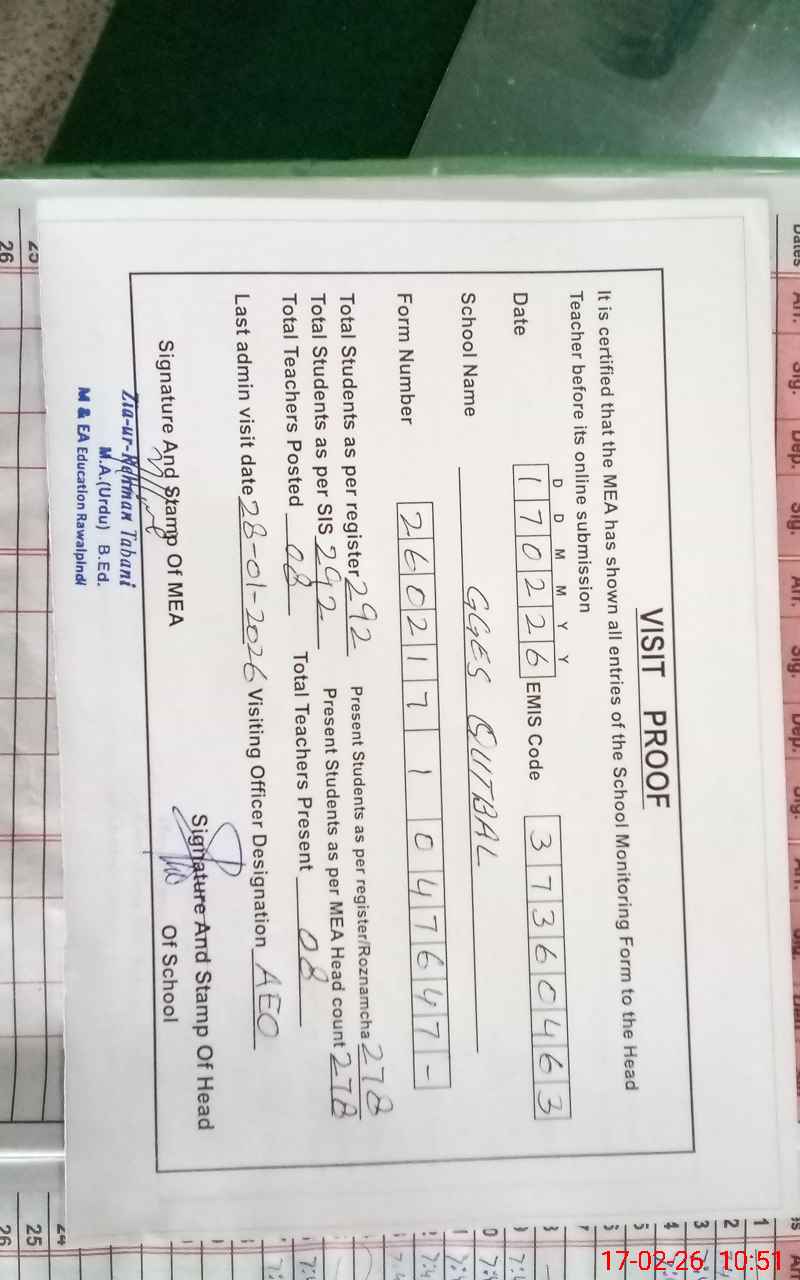 VISIT PROOF
It is certified that the MEA has shown all entries of the School Monitoring Form to the Head
Teacher before its online submission
D D M M Y Y
Date 170226 EMIS Code 37360463
School Name GGES QUTBAL
Form Number 2602171047647-
Total Students as per register 292 Present Students as per register/Roznamcha 278
Total Students as per SIS 292 Present Students as per MEA Head count 278
Total Teachers Posted 08 Total Teachers Present 08
Last admin visit date 28-01-2026 Visiting Officer Designation AEO
Signature And Stamp Of MEA
Signature And Stamp Of Head
Of School
Zia-ur-Rehman Tabani
M.A.(Urdu) B.Ed.
M & EA Education Rawalpindi
17-02-26 10:51